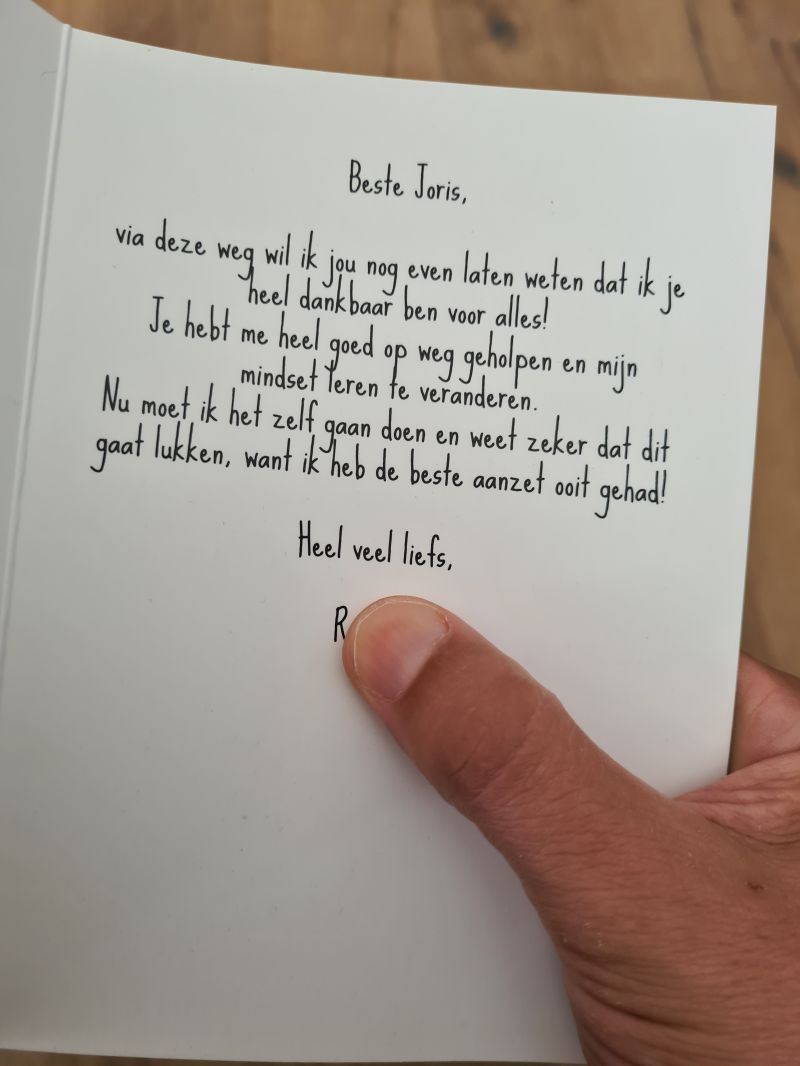 Beste Joris,
via deze weg wil ik jou nog even laten weten dat ik je
heel dankbaar ben voor alles!
Je hebt me heel goed op weg geholpen en mijn
mindset leren te veranderen.
Nu moet ik het zelf gaan doen en weet zeker dat dit
gaat lukken, want ik heb de beste aanzet ooit gehad!
Heel veel liefs,
R